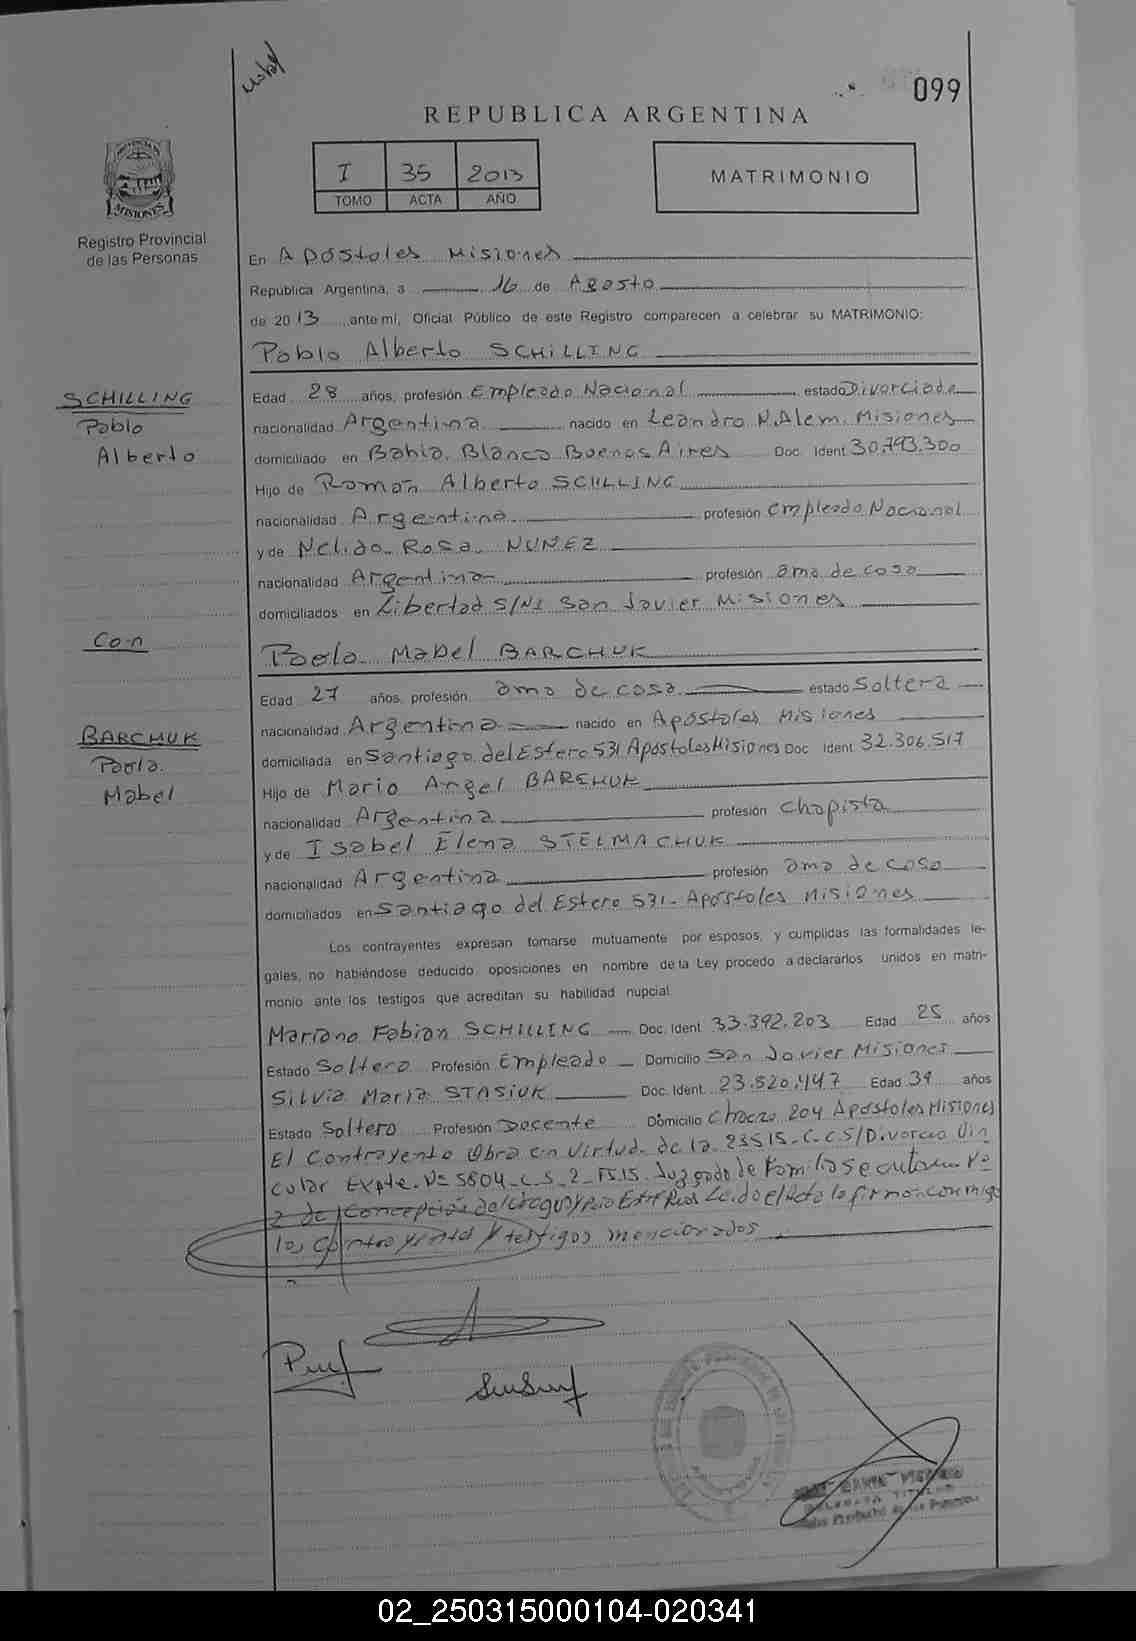 Mabel
099
REPUBLICA ARGENTINA
I 35 2013
TOMO ACTA AÑO
MATRIMONIO
PROVINCIA DE
MISIONES
Registro Provincial
de las Personas
En Apóstoles Misiones
República Argentina, a 16 de Agosto
de 2013 ante mí, Oficial Público de este Registro comparecen a celebrar su MATRIMONIO:
Pablo Alberto SCHILLING
SCHILLING
Pablo
Alberto
Edad 28 años, profesión Empleado Nacional estado Divorciado
nacionalidad Argentina nacido en Leandro N. Alem. Misiones
domiciliado en Bahia Blanca Buenos Aires Doc. Ident 30.793.300
Hijo de Román Alberto SCHILLING
nacionalidad Argentina profesión empleado Nacional
y de Nelida Rosa NUÑEZ
nacionalidad Argentina profesión ama de casa
domiciliados en Libertad S/Nº San Javier Misiones
Con
Paola Mabel BARCHUK
BARCHUK
Paola
Mabel
Edad 27 años, profesión ama de casa estado Soltera
nacionalidad Argentina nacido en Apóstoles Misiones
domiciliada en Santiago del Estero 531 Apóstoles Misiones Doc Ident 32.306.517
Hijo de Mario Angel BARCHUK
nacionalidad Argentina profesión chapista
y de Isabel Elena STELMACHUK
nacionalidad Argentina profesión ama de casa
domiciliados en Santiago del Estero 531- Apóstoles Misiones
Los contrayentes expresan tomarse mutuamente por esposos, y cumplidas las formalidades le-
gales, no habiéndose deducido oposiciones en nombre de la Ley procedo a declararlos unidos en matri-
monio ante los testigos que acreditan su habilidad nupcial
Mariano Fabian SCHILLING Doc. Ident 33.392.203 Edad 25 años
Estado Soltero Profesión Empleado Domicilio San Javier Misiones
Silvia Maria STASIUK Doc. Ident. 23.520.447 Edad 39 años
Estado Soltero Profesión Docente Domicilio Chaco 204 Apóstoles Misiones
El Contrayente Obra en Virtud de la 23515-C.C.S/Divorcio Vin
cular Expte. Nº 5804 Juzgado de Familia Nº
2 de Concepción del Uruguay Leido el Acta la firman conmigo
los contrayentes y testigos mencionados
02_250315000104-020341